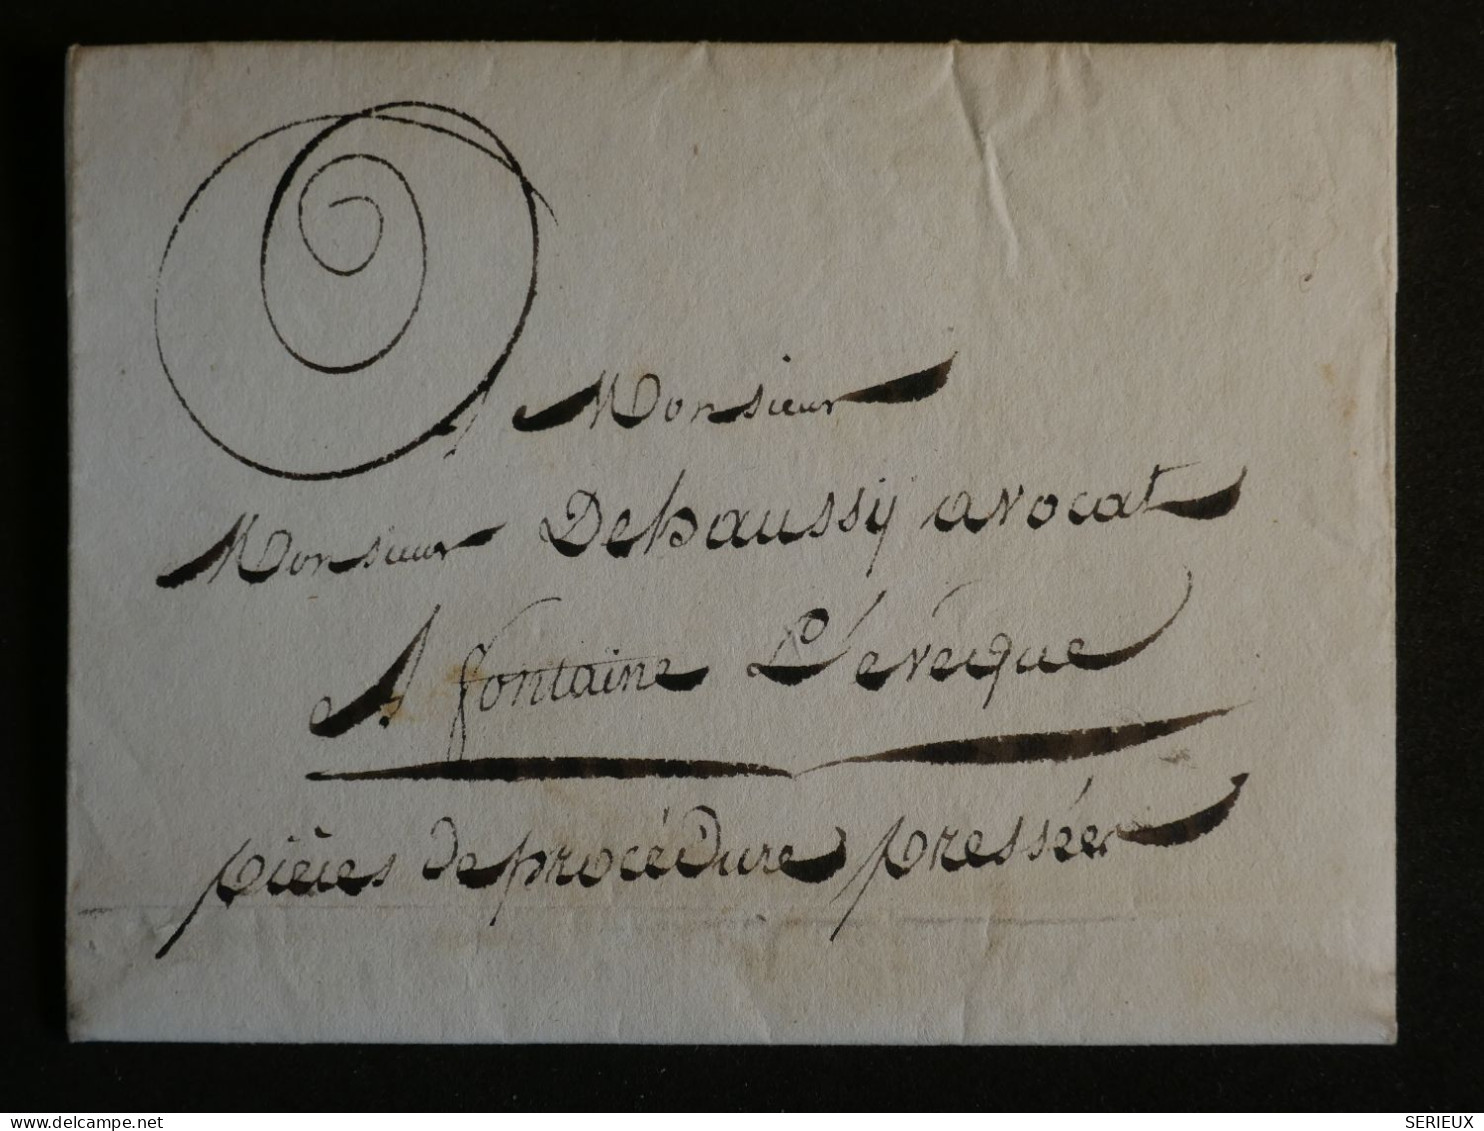 A Monsieur
Monsieur Dehaussÿ avocat
A fontaine L'évéque
pièces de procédure pressées
www.delcampe.net
SERIEUX